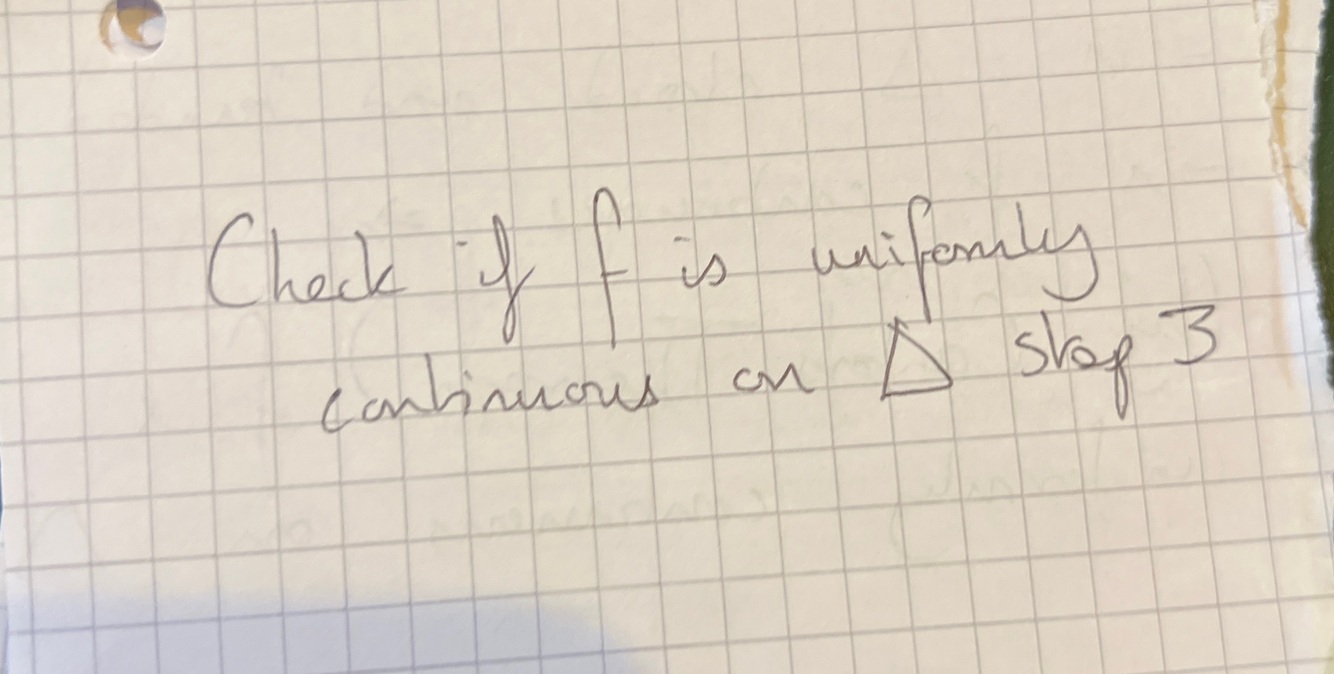 Check if f is uniformly
continuous on Δ step 3